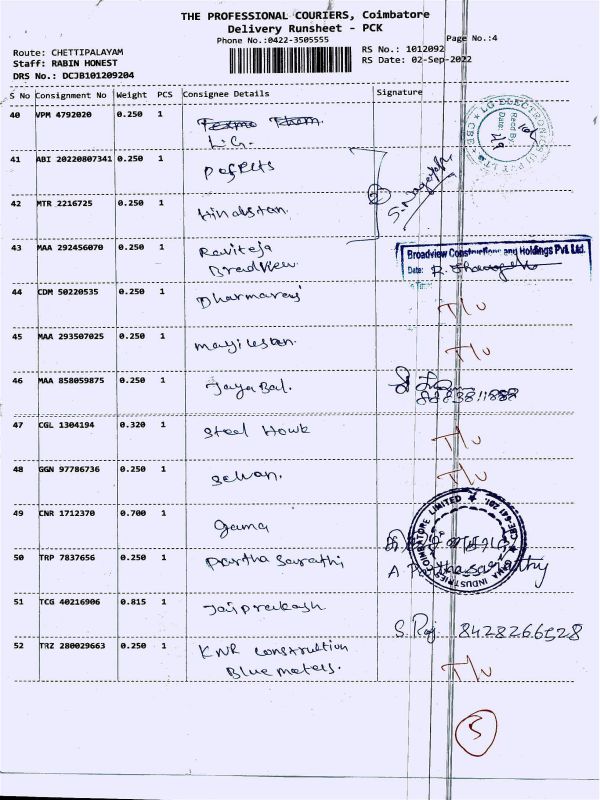 THE PROFESSIONAL COURIERS, Coimbatore
Delivery Runsheet - PCK
Phone No.:0422-3505555
Page No.:4
Route: CHETTIPALAYAM
RS No.: 1012092
Staff: RABIN HONEST
RS Date: 02-Sep-2022
DRS No.: DCJB101209204
S No Consignment No Weight PCS Consignee Details Signature
40 VPM 4792020 0.250 1
L.G.
41 ABI 20220807341 0.250 1
42 MTR 2216725 0.250 1 Hindustan.
S. Nagaraj
43 MAA 292456070 0.250 1 Raviteja
Bradview
Broadview Constructions and Holdings Pvt. Ltd.
Date:
44 CDM 50220535 0.250 1 Dharmaraj
T/u
45 MAA 293507025 0.250 1
T/u
46 MAA 858059875 0.250 1 Jayabal.
47 CGL 1304194 0.320 1 Steel Howk
T/u
48 GGN 97786736 0.250 1 Selvan.
T/u
49 CNR 1712370 0.700 1 gama
50 TRP 7837656 0.250 1 Partha Sarathi
A Parthasarathy
51 TCG 40216906 0.815 1 Jaiprakash
S. Raj 8428266528
52 TRZ 280029663 0.250 1 KNR Construction
Blue meters.
T/u
5